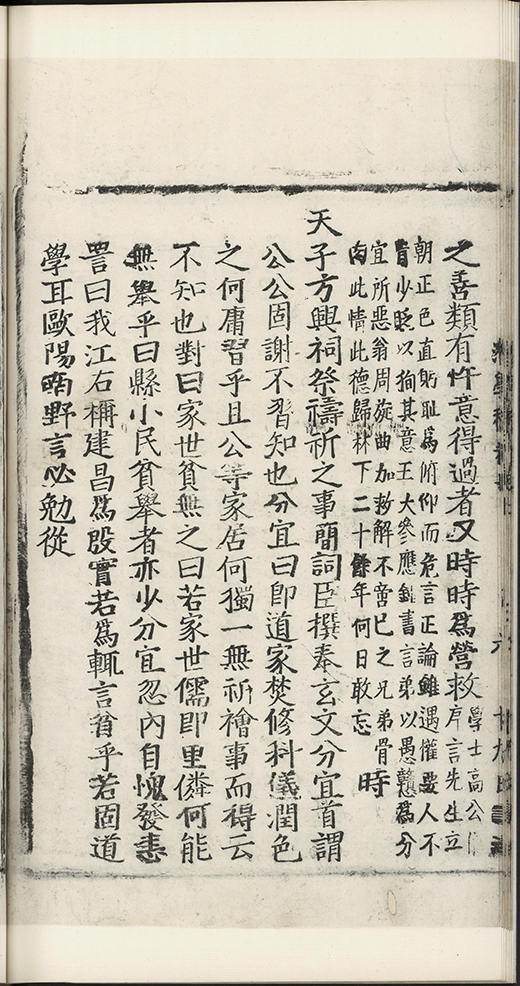 之善類有忤意得過者又時時爲營救學士高公序言先生立
朝正色直躬耻爲俯仰而危言正論雖遇權要人不
肯少貶以狥其意王大參應鍾書言弟以愚戇爲分
宜所惡翁周旋曲加救解不啻已之兄弟骨
肉此情此德歸林下二十餘年何日敢忘時
天子方興祠祭禱祈之事簡詞臣撰奉玄文分宜首謂
公公固謝不習知也分宜曰卽道家焚修科儀潤色
之何庸習乎且公等家居何獨一無祈禬事而得云
不知也對曰家世貧無之曰若家世儒卽里隣何能
無舉乎曰縣小民貧舉者亦少分宜忍內自愧發恚
詈曰我江右稱建昌爲殷實若爲輒言貧乎若固道
學耳歐陽南野言必勉從